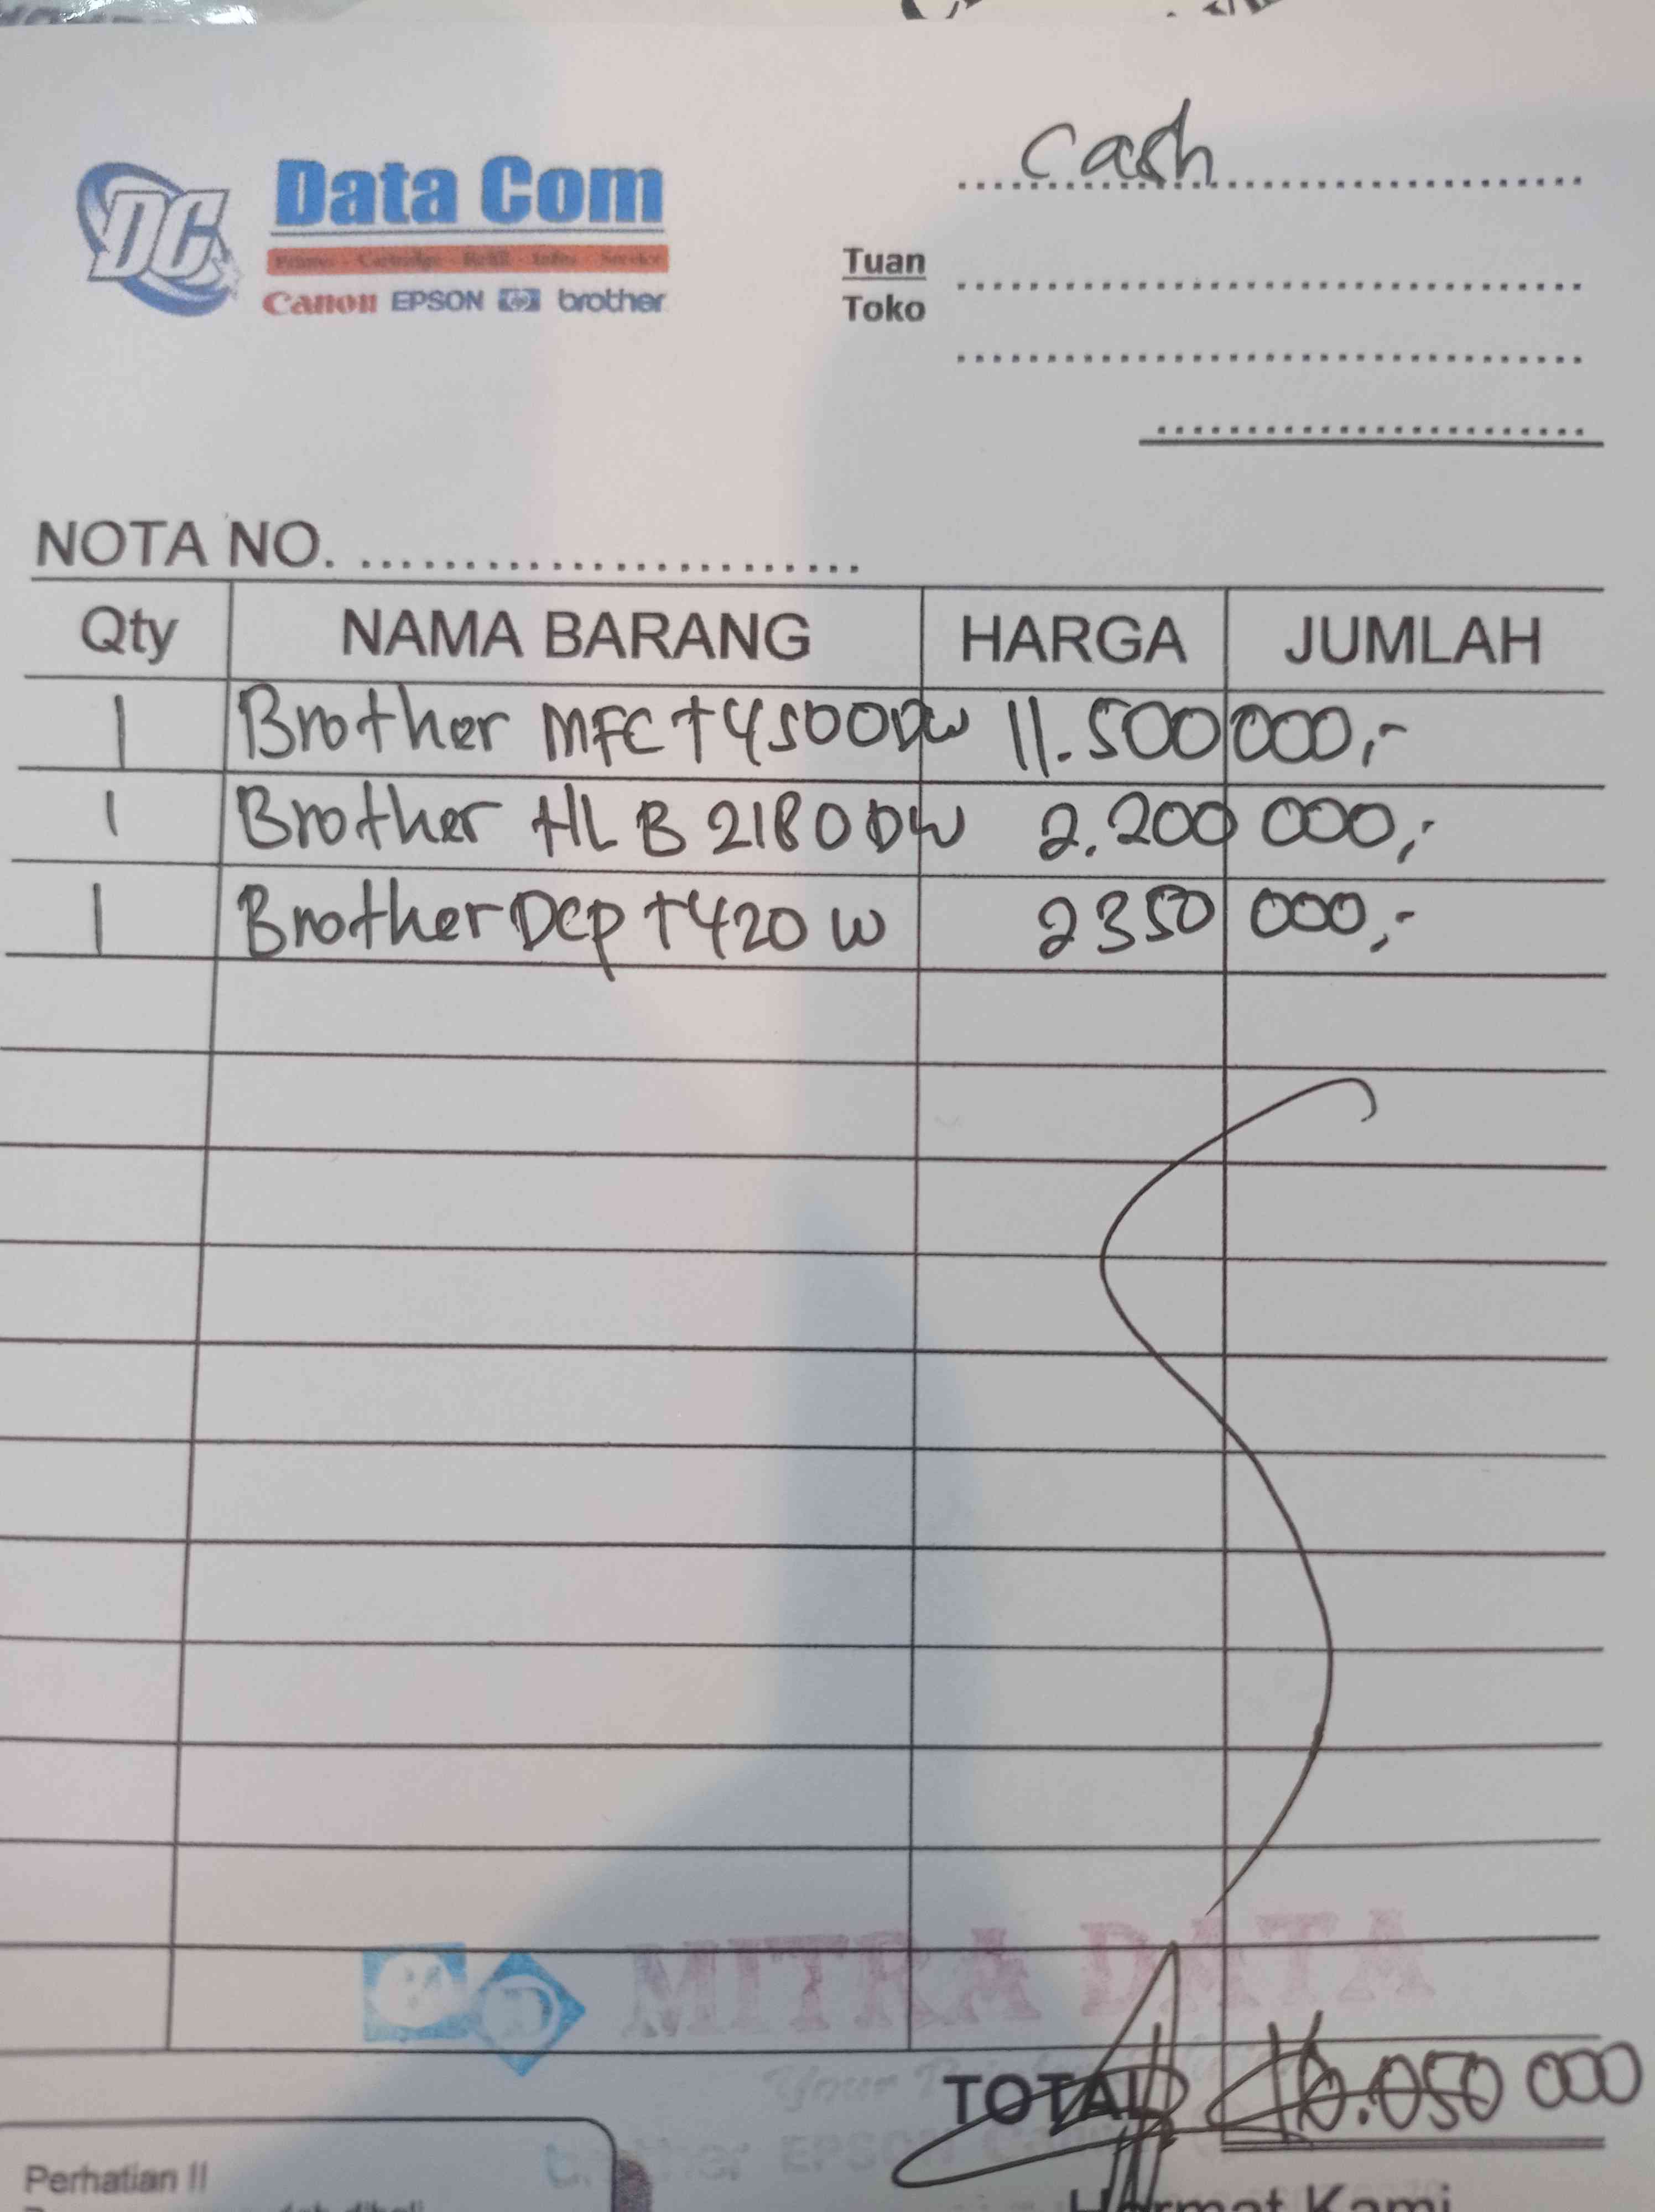 cash
DC
Data Com
Printer - Cartridge - Refill - Infus - Service
Canon EPSON hp brother
Tuan
Toko
NOTA NO. ........................
Qty NAMA BARANG HARGA JUMLAH
1 Brother MFC T4500DW 11.500 000,-
1 Brother HL B 2180 DW 2.200 000,-
1 Brother Dcp T420 W 2350 000,-
MITRA DATA
TOTAL 16.050 000
brother EPSON
Perhatian !!
Hormat Kami